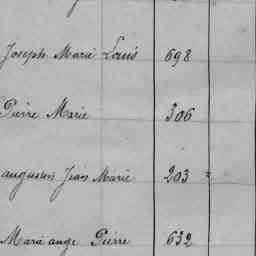 Joseph Marie Louis 698
Pierre Marie 306
augustin Jean Marie 203 "
Marie ange Pierre 632